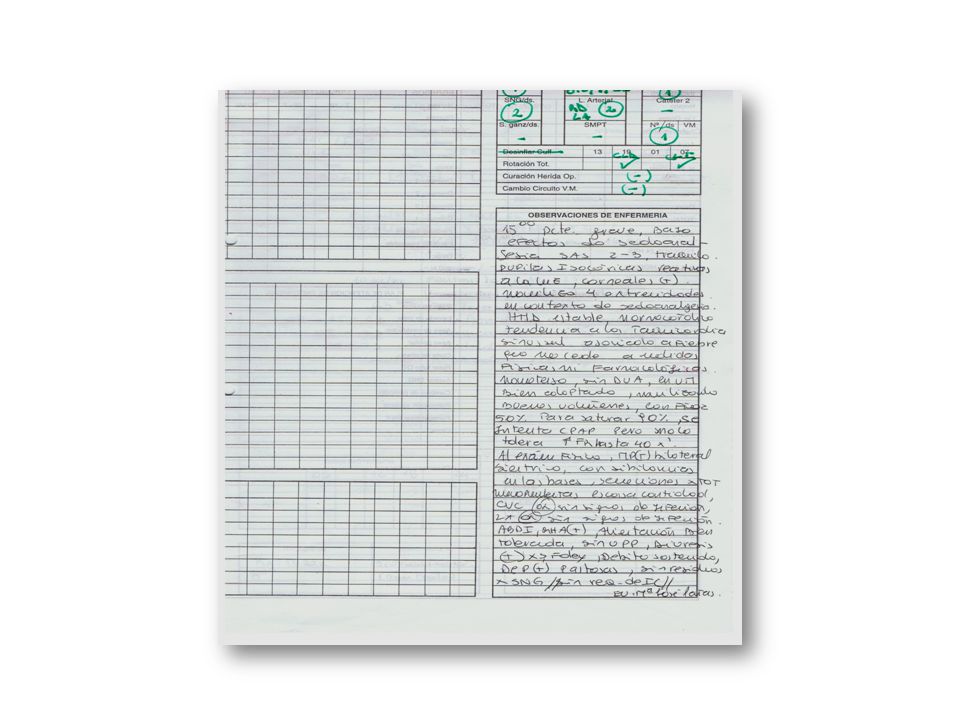 SNG/ds. L. Arterial Catéter 2
2 AD 2 -
LA
S. ganz/ds. SMPT Nº/ds VM
- - 1
Desinflar Cuff 13 19 01 07
Rotación Tot.
Curación Herida Op. (-)
Cambio Circuito V.M. (-)
OBSERVACIONES DE ENFERMERIA
15 00 Pcte. grave, Bajo
efectos de sedoanal-
gesia SAS 2-3, tranquilo.
Pupilas Isocóricas reactivas
a la luz, corneales (+).
moviliza 4 extremidades
en contexto de sedoanalgesia.
HMD estable, normocárdico
tendencia a la Taquicardia
sinusal asociado a Fiebre
que no cede a medidas
Físicas ni Farmacológicas.
Normotenso, sin DVA, en VM
Bien adaptado, movilizando
Buenos volúmenes, con FiO2
50% Para saturar 90%, se
Intenta CPAP pero no lo
tolera ↑ FR hasta 40 x'.
Al exámen Físico, MP(+) bilateral
simétrico, con sibilancias
en las bases, secreciones x TOT
mucopurulentas escasa cantidad,
CVC sin signos de infección,
LA sin signos de infección.
ABDI, RHA(+), Alimentación Bien
tolerada, sin UPP, Diuresis
(+) x S. Foley, Debito sostenido,
Dep(+) Pastosas, sin residuos
x SNG // sin req. de IC //
EU. Mª José